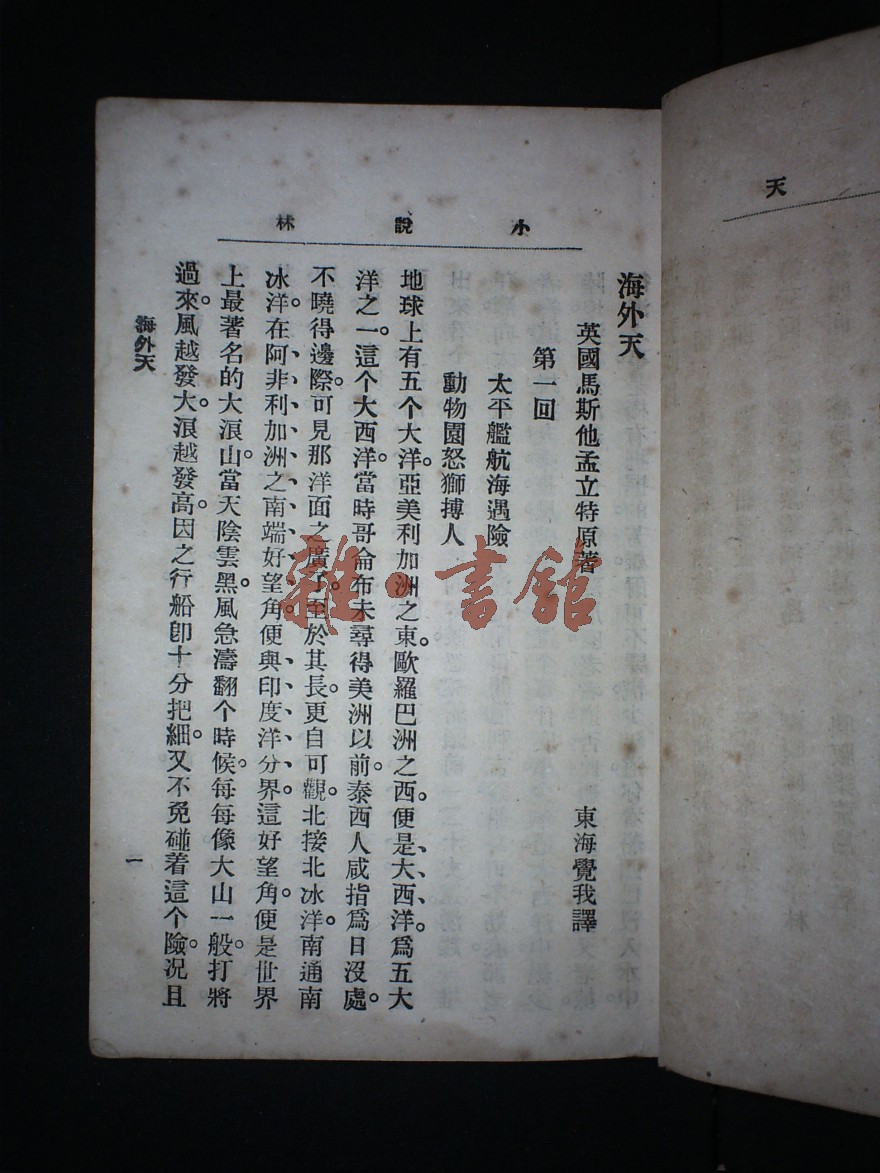 天
小說林
海外天
英國馬斯他孟立特原著 東海覺我譯
第一回
太平艦航海遇險
動物園怒獅搏人
地球上有五个大洋。亞美利加洲之東。歐羅巴洲之西。便是大西洋。爲五大
洋之一。這个大西洋。當時哥侖布未尋得美洲以前。泰西人咸指爲日沒處。
不曉得邊際。可見那洋面之廣了。至於其長。更自可觀。北接北冰洋。南通南
冰洋。在阿非利加洲之南端好望角。便與印度洋分界。這好望角。便是世界
上最著名的大浪山。當天陰雲黑。風急濤翻个時候。每每像大山一般。打將
過來。風越發大。浪越發高。因之行船卽十分把細。又不免碰着這个險。況且
海外天
一
雜·書館